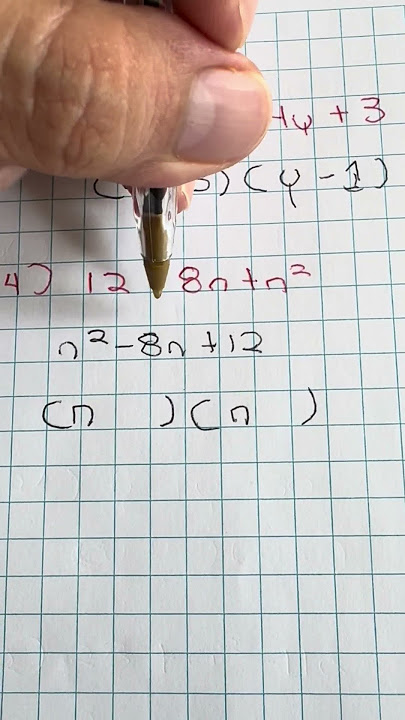 4y + 3
) ( y - 1 )
4) 12 8n + n²
n² - 8n + 12
(n ) ( n )